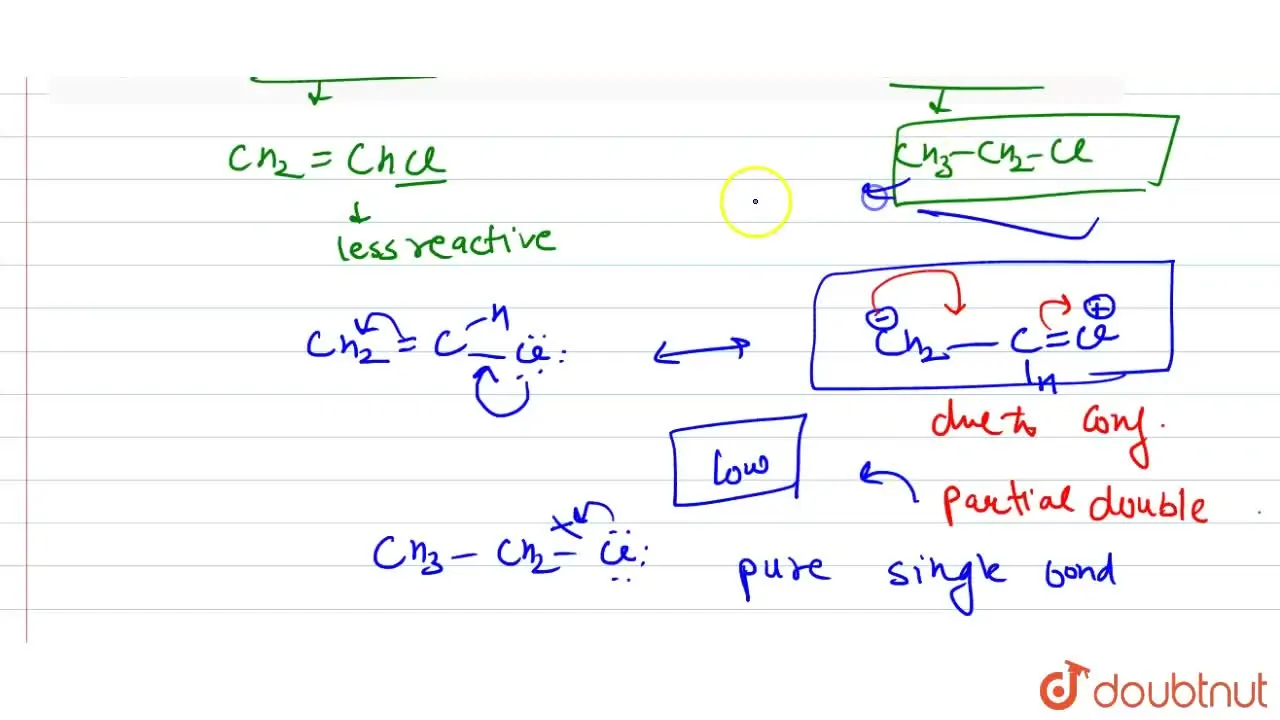 CH2 = CHCl
CH3-CH2-Cl
less reactive
CH2 = C-H-Cl:
⊖CH2 - C = Cl⊕
H
due to conj.
low
partial double
CH3 - CH2 - Cl:
pure single bond
doubtnut